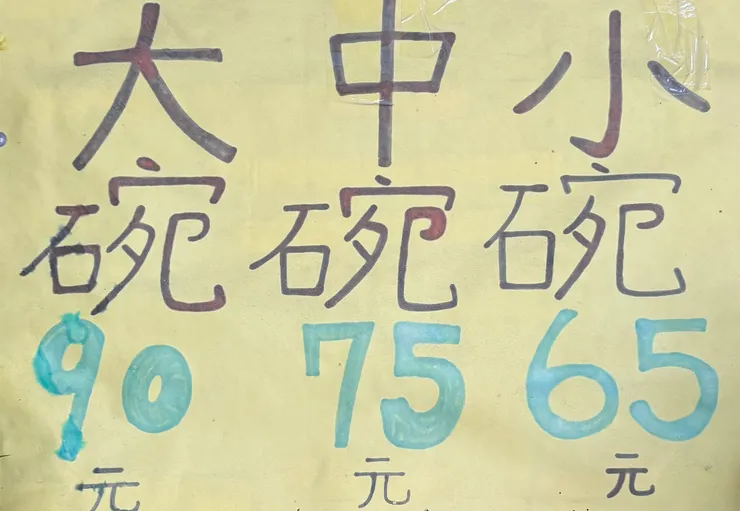 大碗 中碗 小碗
90 75 65
元 元 元